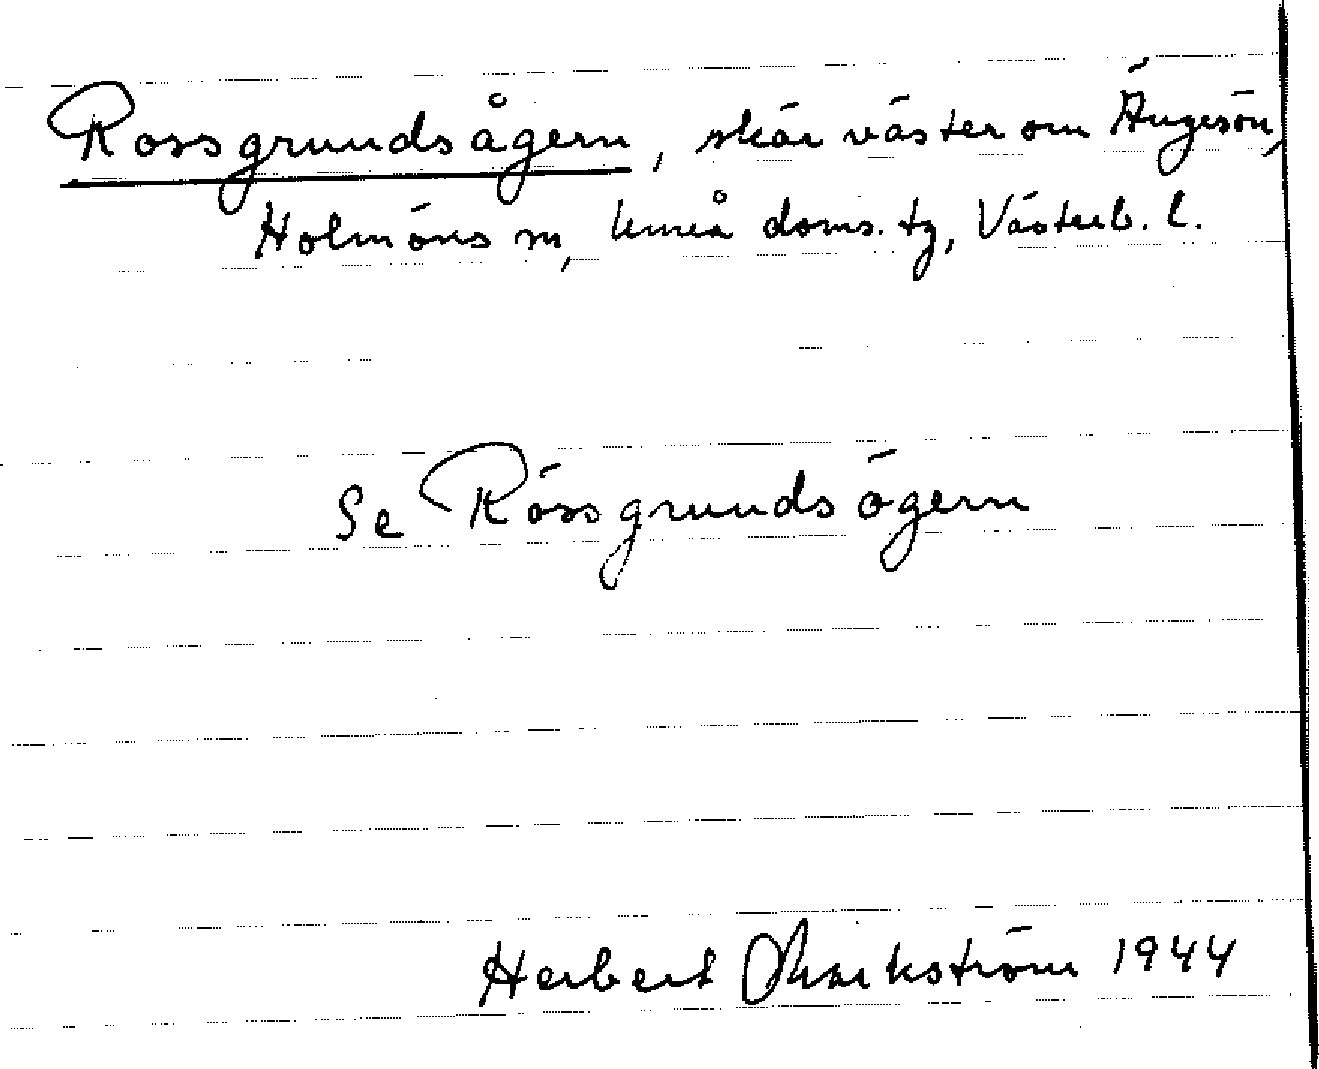 Rossgrundsågern, skär väster om Ängesön,
Holmöns sn, Umeå doms. tg, Västerb. l.
Se Rössgrundsögern
Herbert Markström 1944